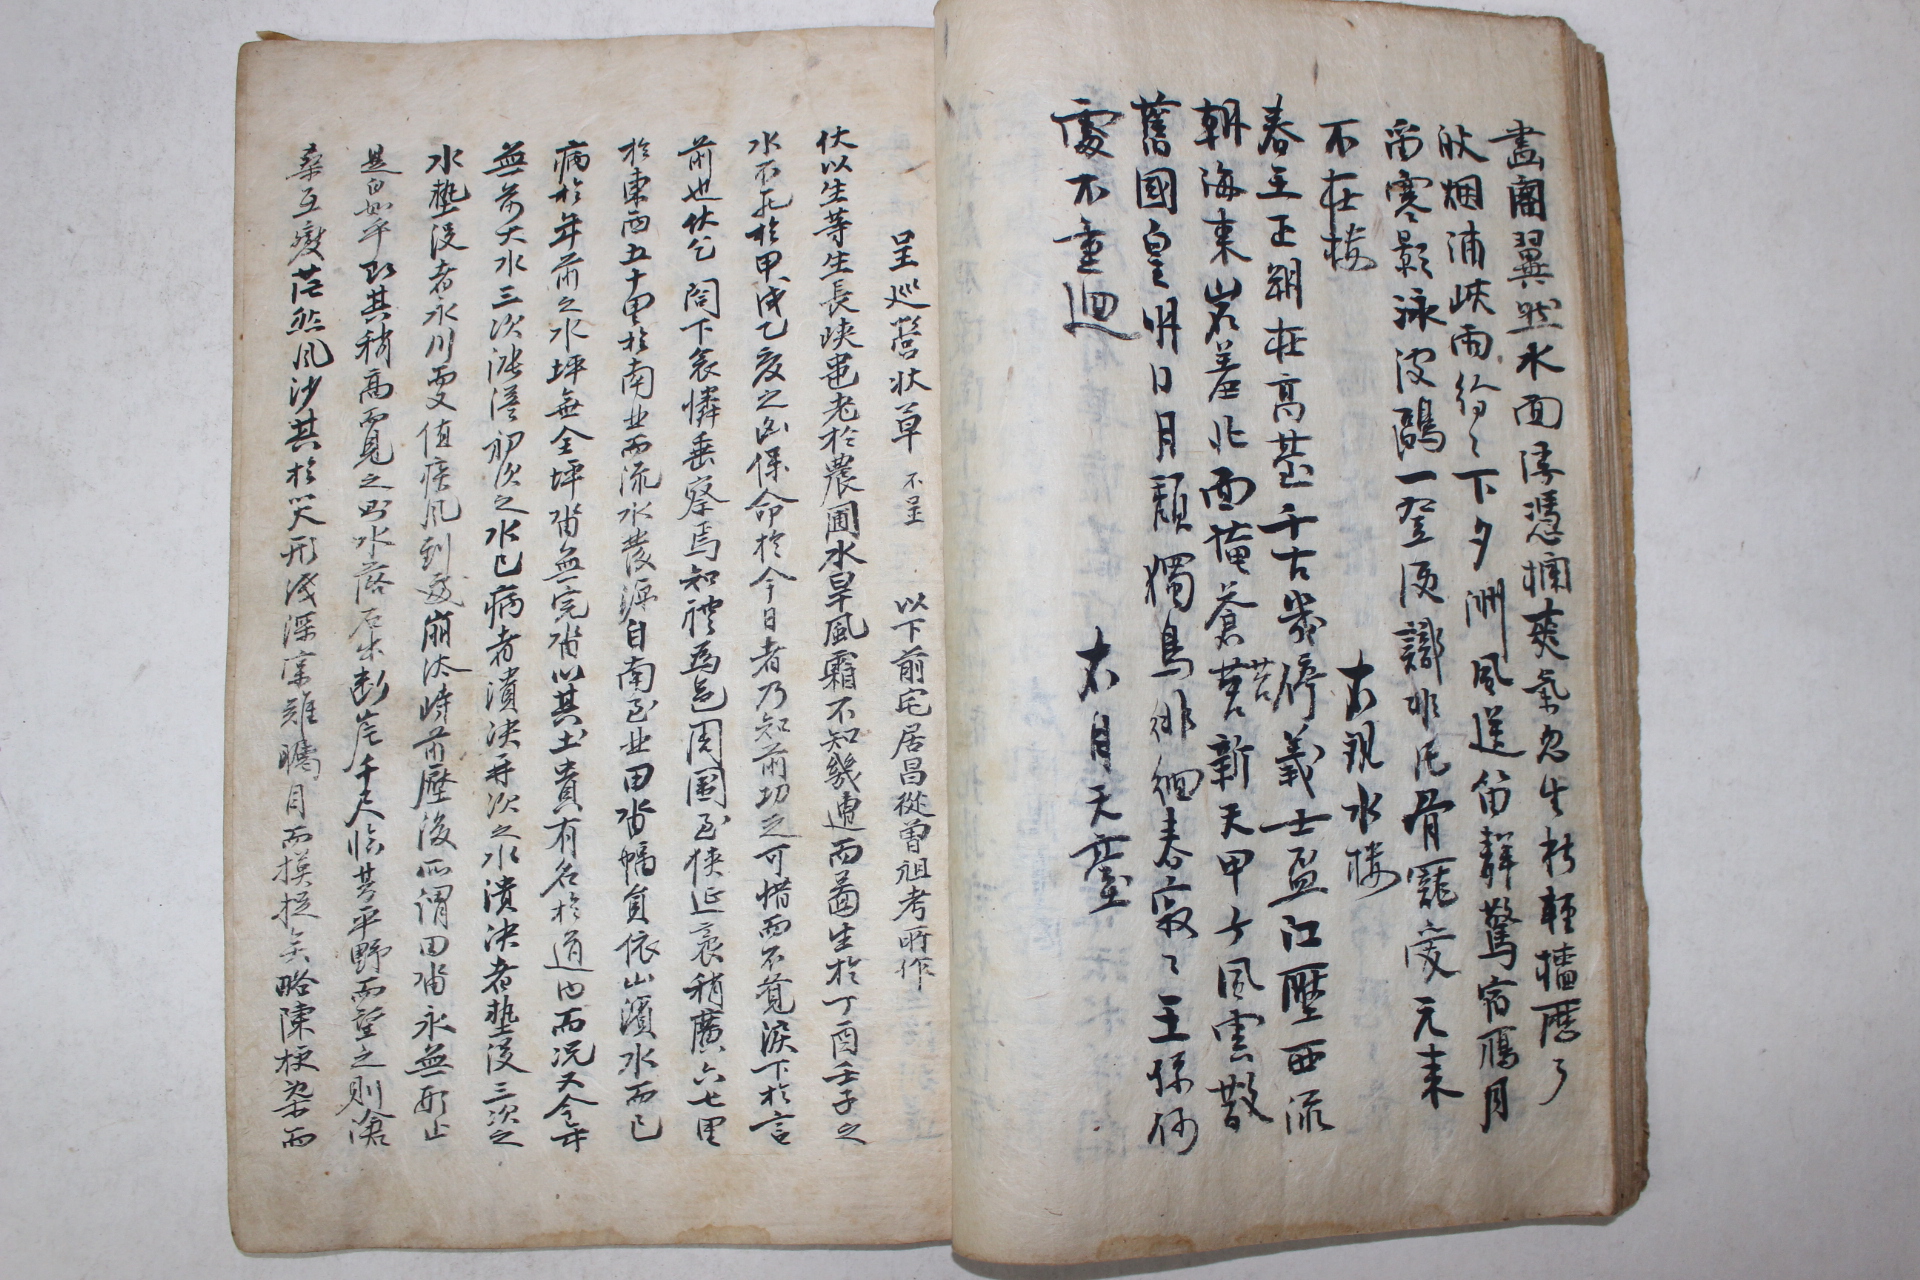 畵閣翼然水面浮憑欄爽氣忽生秋輕檣歷了
灘烟浦峽雨紛〻下夕洲風送笛聲驚宿鴈月
留寒影泳浮鷗一登便識非凡骨寵愛元來
不在樓 右觀水樓
春王正朔在高臺千古幾停義士盃江壓西流
朝海東岩羞北面掩蒼苔新天甲子風雲散
舊國皇明日月頹獨鳥徘徊春寂〻王孫何
處不重廻 右月天臺
呈巡營狀草 不呈 以下前宅居昌從曾祖考所作
伏以生等生長峽 老於農圃水旱風霜不知幾遭而 生於丁酉壬子之
水不死於甲戌乙亥之凶保命於今日者乃知前功之可惜而不覺淚下於言
前也伏乞 閤下哀憐垂察焉知禮爲邑周圍至狹延袤稍廣六七里
於東西五十里於南北而流水發源自南至北田畓幅員依山濱水而已
病於年前之水坪無全坪畓無完畓以其土貴有名於道內而况又今年
無前大水三次漲溢初次之水已病者潰決再次之水潰決者墊沒三次之
水墊沒者永川雯值 風到處崩汰時前壓後所謂田畓永無形止
是白如乎 其稍高而覓之則水落石出斷崖千尺臨其平野而望之則滄
桑互變茫然風沙其於災形淺深案難瞞目而摸捉矣略陳梗槩而